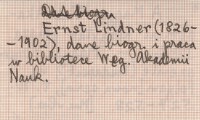 Ernst Lindner (1826-
-1902), dane biogr. i praca
w bibliotece Węg. Akademii
Nauk.